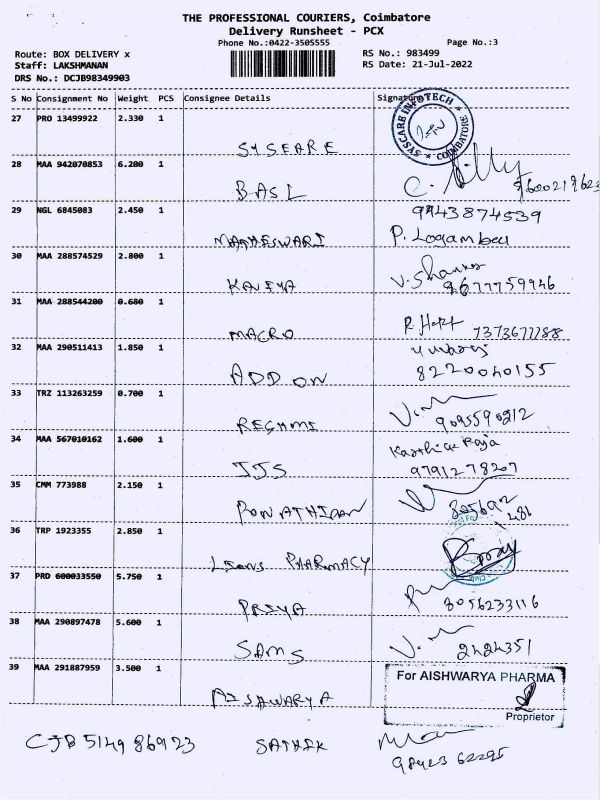 THE PROFESSIONAL COURIERS, Coimbatore
Delivery Runsheet - PCX
Phone No.:0422-3505555
Page No.:3
Route: BOX DELIVERY x
Staff: LAKSHMANAN
DRS No.: DCJB98349903
RS No.: 983499
RS Date: 21-Jul-2022
S No Consignment No Weight PCS Consignee Details Signature
27 PRO 13499922 2.330 1
SYSCARE INFOTECH COIMBATORE
SYSEARE
28 MAA 942070853 6.200 1
BASL
29 NGL 6845083 2.450 1
9943874539
MAGHESWARI P. Logambal
30 MAA 288574529 2.800 1
KAVIYA V. Shankar 9677759946
31 MAA 288544200 0.680 1
MACRO 7373677788
32 MAA 290511413 1.850 1
ADD ON 8220040155
33 TRZ 113263259 0.700 1
RESHMI 9095590212
34 MAA 567010162 1.600 1
Karthick Raja
JJS 9791278207
35 CMM 773988 2.150 1
805692
481
36 TRP 1923355 2.850 1
Lions PHARMACY
37 PRD 600033550 5.750 1
PRIYA 8056233116
38 MAA 290897478 5.600 1
SAMS 2424351
39 MAA 291887959 3.500 1
For AISHWARYA PHARMA
AISHWARYA
Proprietor
CJB 514986923 SATHEK